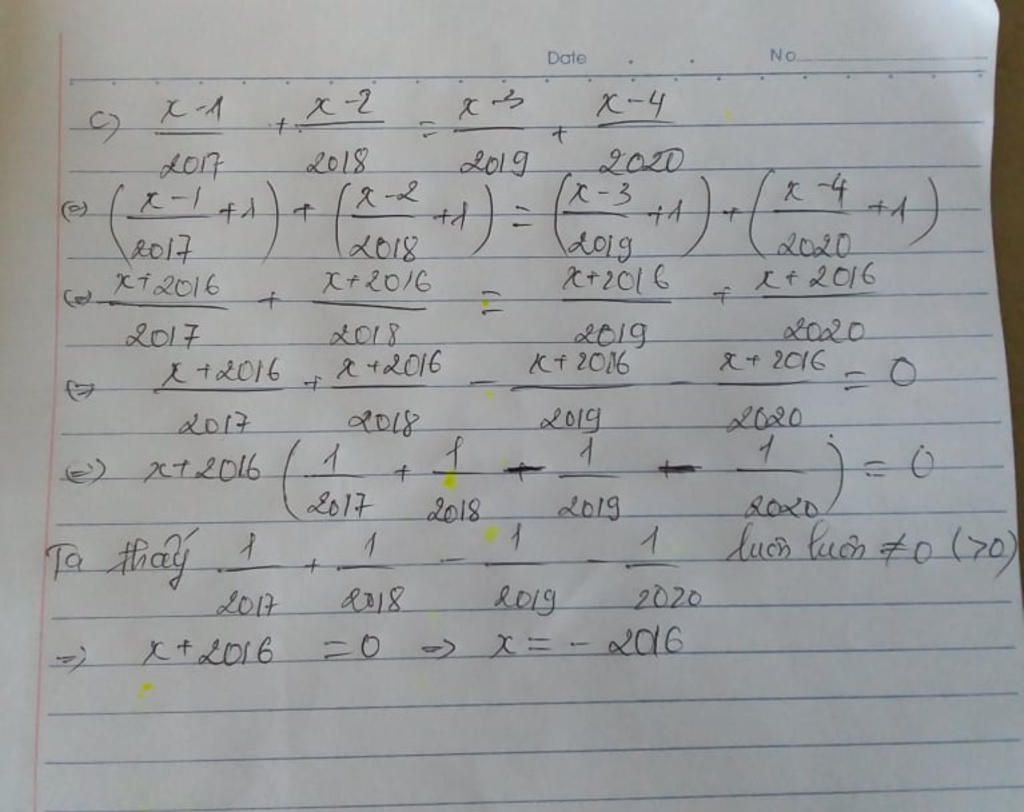 Date . . No
c) (x-1)/2017 + (x-2)/2018 = (x-3)/2019 + (x-4)/2020
(=) ((x-1)/2017 +1) + ((x-2)/2018 +1) = ((x-3)/2019 +1) + ((x-4)/2020 +1)
(=) (x+2016)/2017 + (x+2016)/2018 = (x+2016)/2019 + (x+2016)/2020
(=) (x+2016)/2017 + (x+2016)/2018 - (x+2016)/2019 - (x+2016)/2020 = 0
(=) x+2016 (1/2017 + 1/2018 - 1/2019 - 1/2020) = 0
Ta thấy 1/2017 + 1/2018 - 1/2019 - 1/2020 luôn luôn ≠0 (>0)
=) x+2016 =0 => x = - 2016